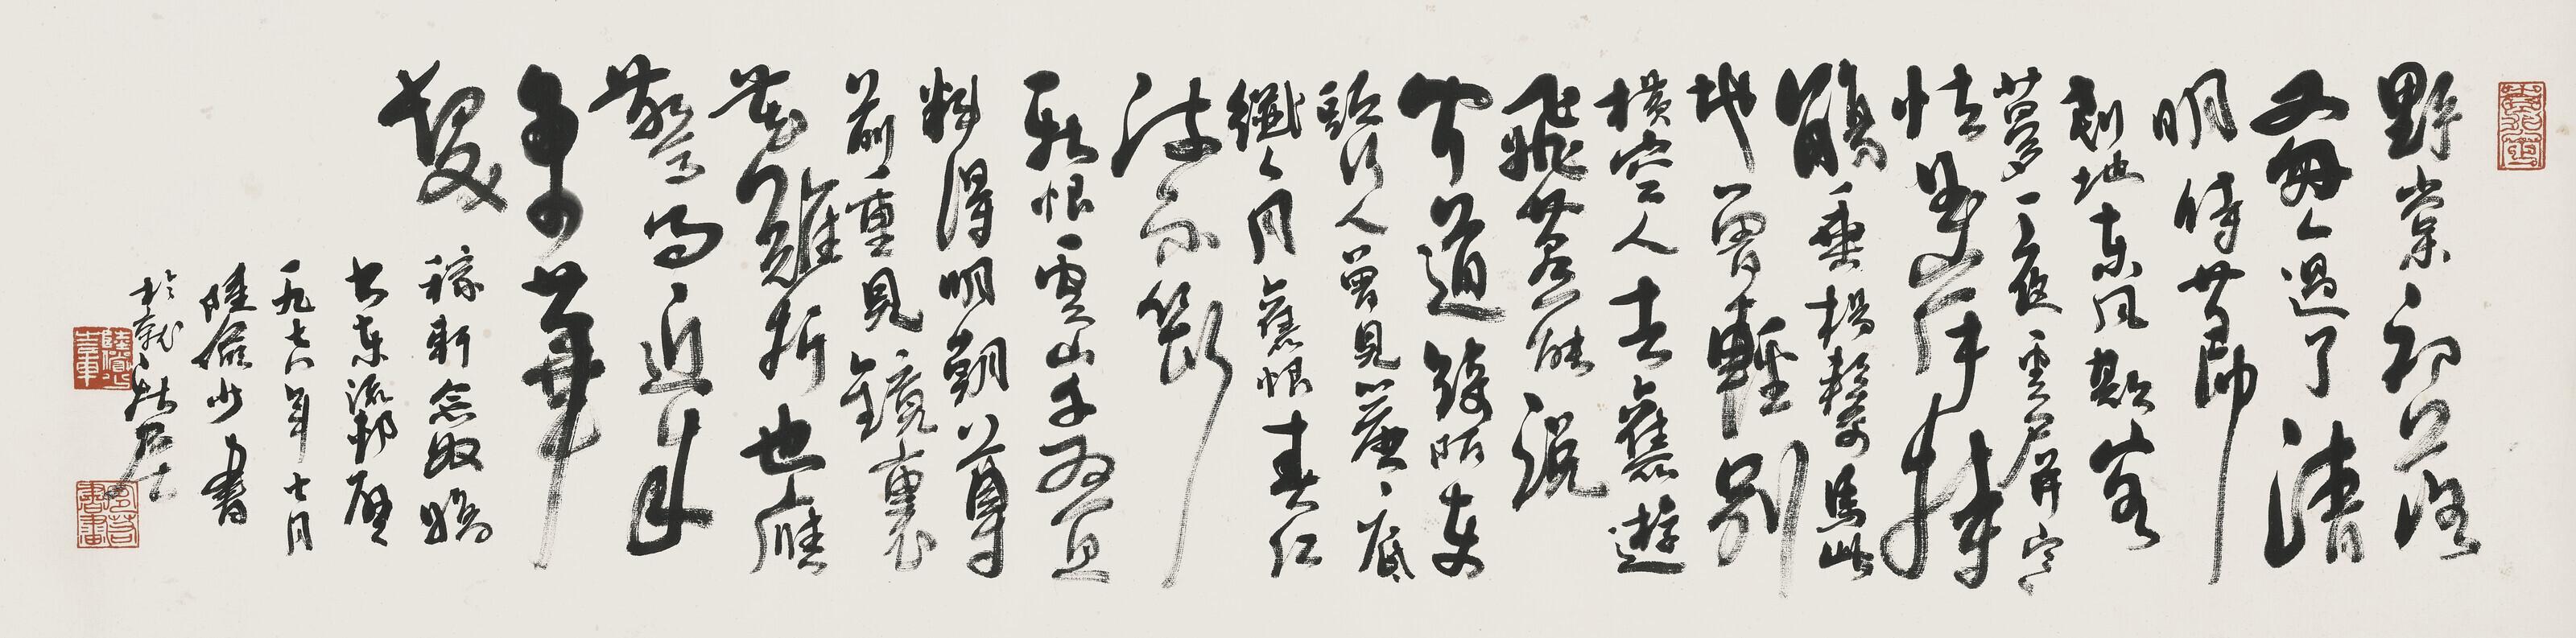 野棠初落
又匆匆過了清
明時節
剗地東風欺客
夢一夜雲屏寒
怯曲岸持
觴垂楊繫馬此
地曾輕別
樓空人去舊遊
飛燕能說
聞道綺陌東
頭行人曾見簾底
纖纖月舊恨春江
流不斷
新恨雲山千疊
料得明朝尊
前重見鏡裏
花難折也應
驚問近來
多少華
髮
稼軒念奴嬌
書東流邨壁
一九七八年十月
陸儼少書
於就
陸儼少